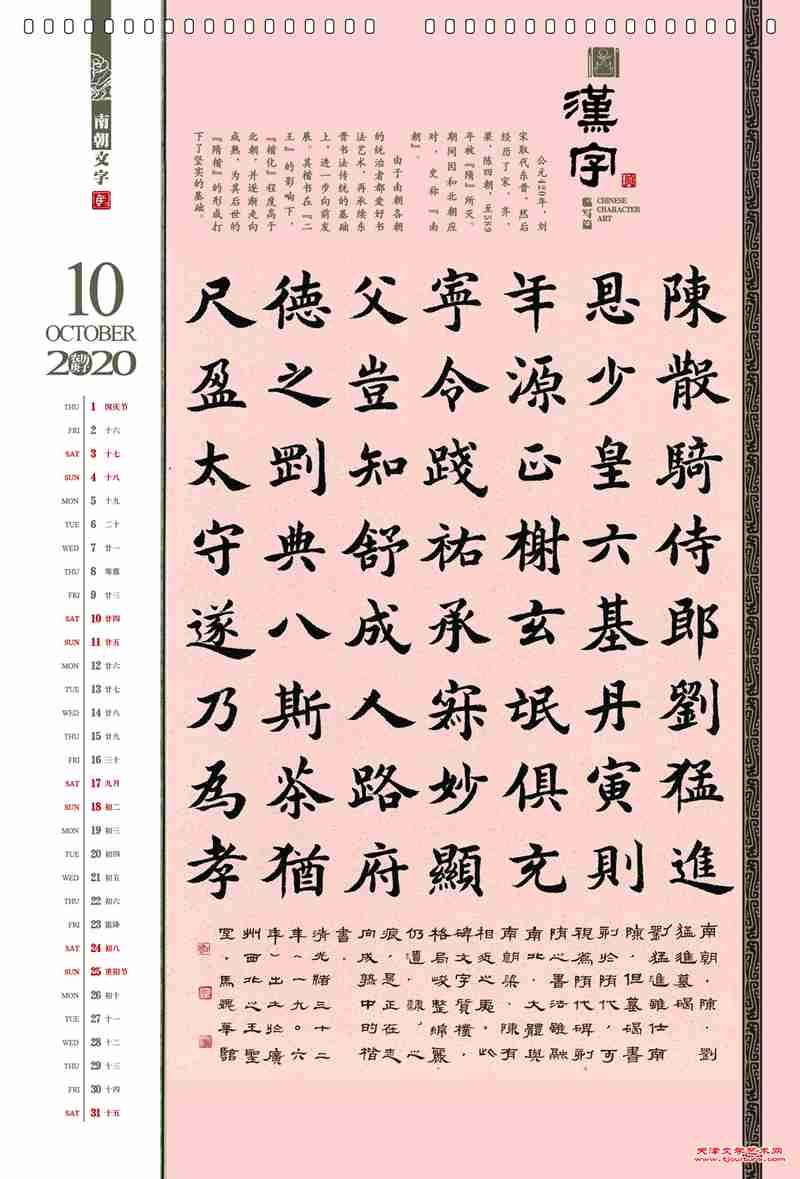 南朝文字
漢字
CHINESE
CHARACTER
ART
公元420年，刘
宋取代东晋，然后
经历了宋、齐、
梁、陈四朝，至589
年被『隋』所灭。
期间因和北朝应
对，史称『南
朝』。
由于南朝各朝
的统治者都爱好书
法艺术，再承续东
晋书法传统的基础
上，进一步向前发
展。其楷书在『二
王』的影响下，
『楷化』程度高于
北朝，并逐渐走向
成熟，为其后世的
『隋楷』的形成打
下了坚实的基础。
10
OCTOBER
2020
农历
庚子
THU 1 国庆节
FRI 2 十六
SAT 3 十七
SUN 4 十八
MON 5 十九
TUE 6 二十
WED 7 廿一
THU 8 寒露
FRI 9 廿三
SAT 10 廿四
SUN 11 廿五
MON 12 廿六
TUE 13 廿七
WED 14 廿八
THU 15 廿九
FRI 16 三十
SAT 17 九月
SUN 18 初二
MON 19 初三
TUE 20 初四
WED 21 初五
THU 22 初六
FRI 23 霜降
SAT 24 初八
SUN 25 重阳节
MON 26 初十
TUE 27 十一
WED 28 十二
THU 29 十三
FRI 30 十四
SAT 31 十五
陳散騎侍郎劉猛進
恩少皇六基丹寅則
年源正榭玄氓俱充
寧令踐祐承寐妙顯
父豈知舒成人路府
德之剛典八斯茶猶
尺盈太守遂乃為孝
南朝·陳·劉
猛進墓碣
劉猛進雖仕南
陳，但墓碣書
刋於隋代，可
視為隋代碑刻
隋之書法雖融
南北，大體與
南朝梁、陳有
相近之夷。此
碑文字質樸，
格局峻整綿麗
仍遺「隸」之
痕，是正在走
向成熟中的楷
書。
清光緒三十二
年（一九〇六
年）出土於廣
州西北之王聖
馬 華館
天津文学艺术网
www.tjculture.com